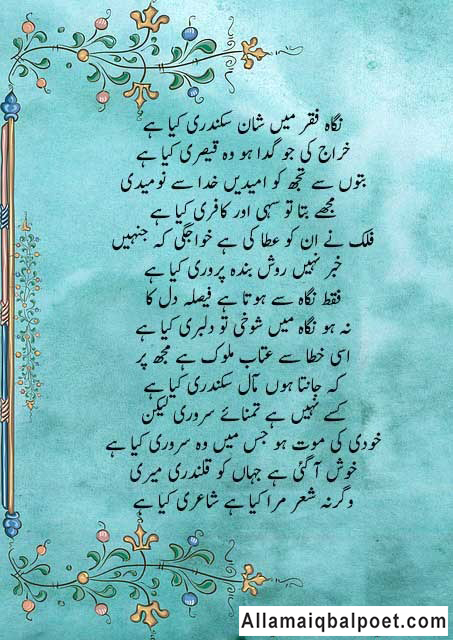 نگاہ فقر میں شان سکندری کیا ہے
خراج کی جو گدا ہو وہ قیصری کیا ہے
بتوں سے تجھ کو امیدیں خدا سے نومیدی
مجھے بتا تو سہی اور کافری کیا ہے
فلک نے ان کو عطا کی ہے خواجگی کہ جنہیں
خبر نہیں روش بندہ پروری کیا ہے
فقط نگاہ سے ہوتا ہے فیصلہ دل کا
نہ ہو نگاہ میں شوخی تو دلبری کیا ہے
اسی خطا سے عتاب ملوک ہے مجھ پر
کہ جانتا ہوں مآل سکندری کیا ہے
کسے نہیں ہے تمنائے سروری لیکن
خودی کی موت ہو جس میں وہ سروری کیا ہے
خوش آ گئی ہے جہاں کو قلندری میری
وگرنہ شعر مرا کیا ہے شاعری کیا ہے
Allamaiqbalpoet.com